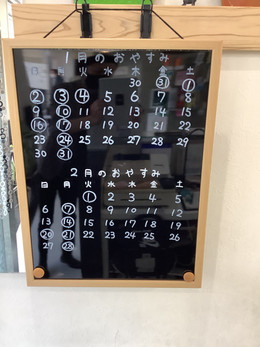 1月のおやすみ
日 月 火 水 木 金 土
30 31 1
2 3 4 5 6 7 8
9 10 11 12 13 14 15
16 17 18 19 20 21 22
23 24 25 26 27 28 29
30 31
2月のおやすみ
日 月 火 水 木 金 土
1 2 3 4 5
6 7 8 9 10 11 12
13 14 15 16 17 18 19
20 21 22 23 24 25 26
27 28